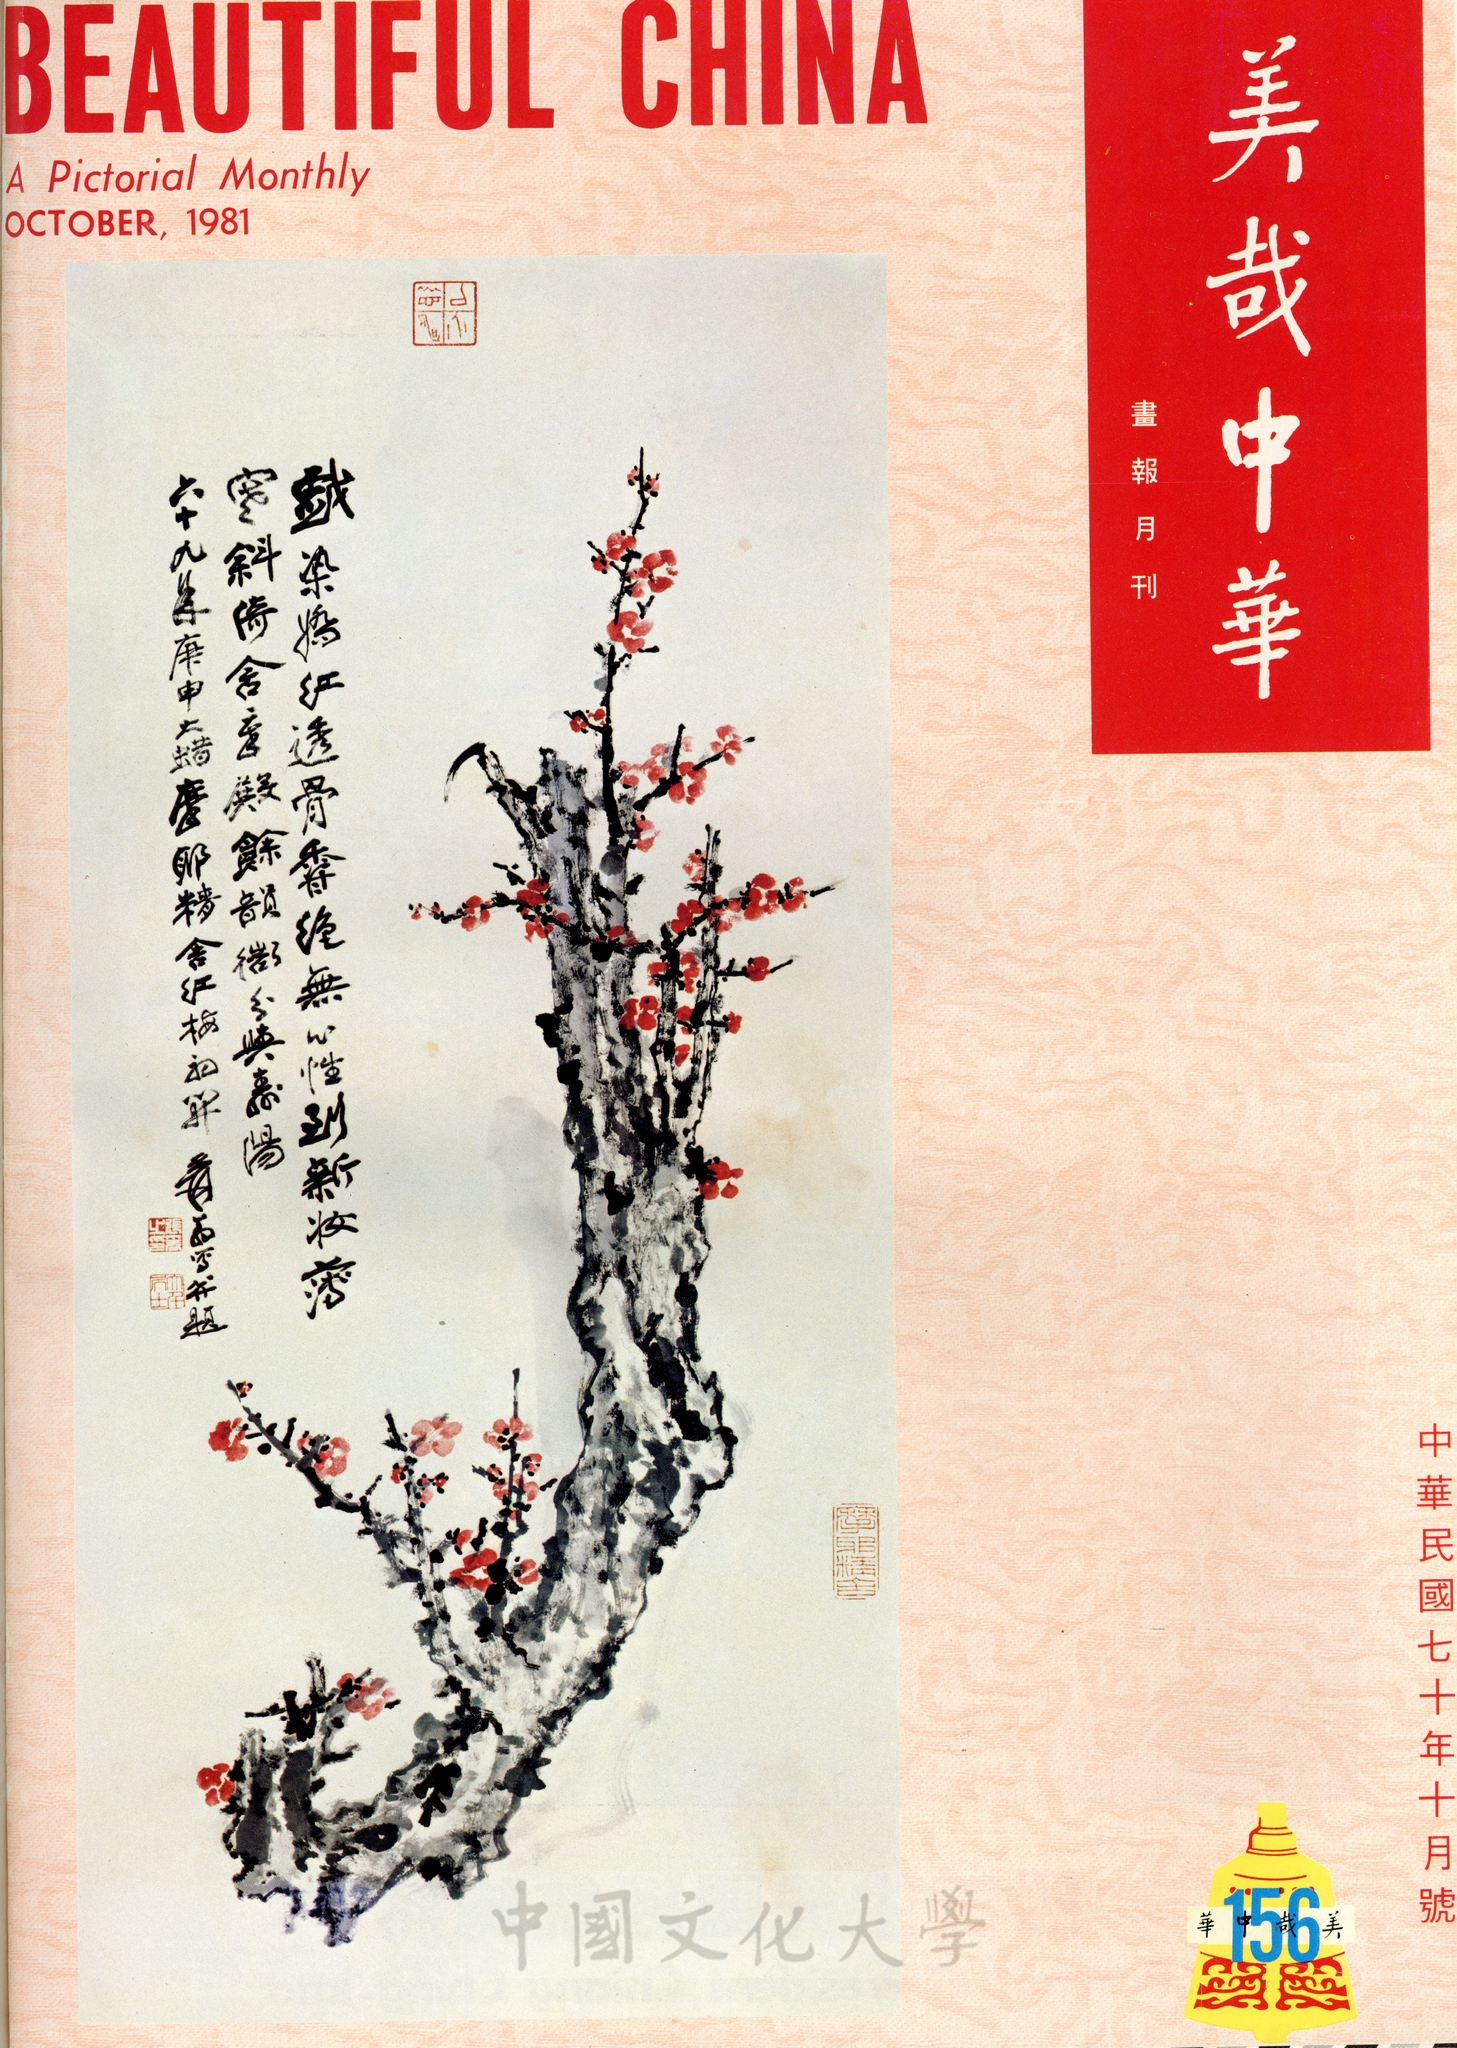 BEAUTIFUL CHINA
A Pictorial Monthly
OCTOBER, 1981
美哉中華
畫報月刊
染嬌紅透骨香絕無心性到新妝薄
寒斜倚含章殿餘韻微分與壽陽
六十九年庚申大蜡摩耶精舍紅梅初開 爰翁寫并題
摩耶精舍
中華民國七十年十月號
156
華中哉美
中國文化大學